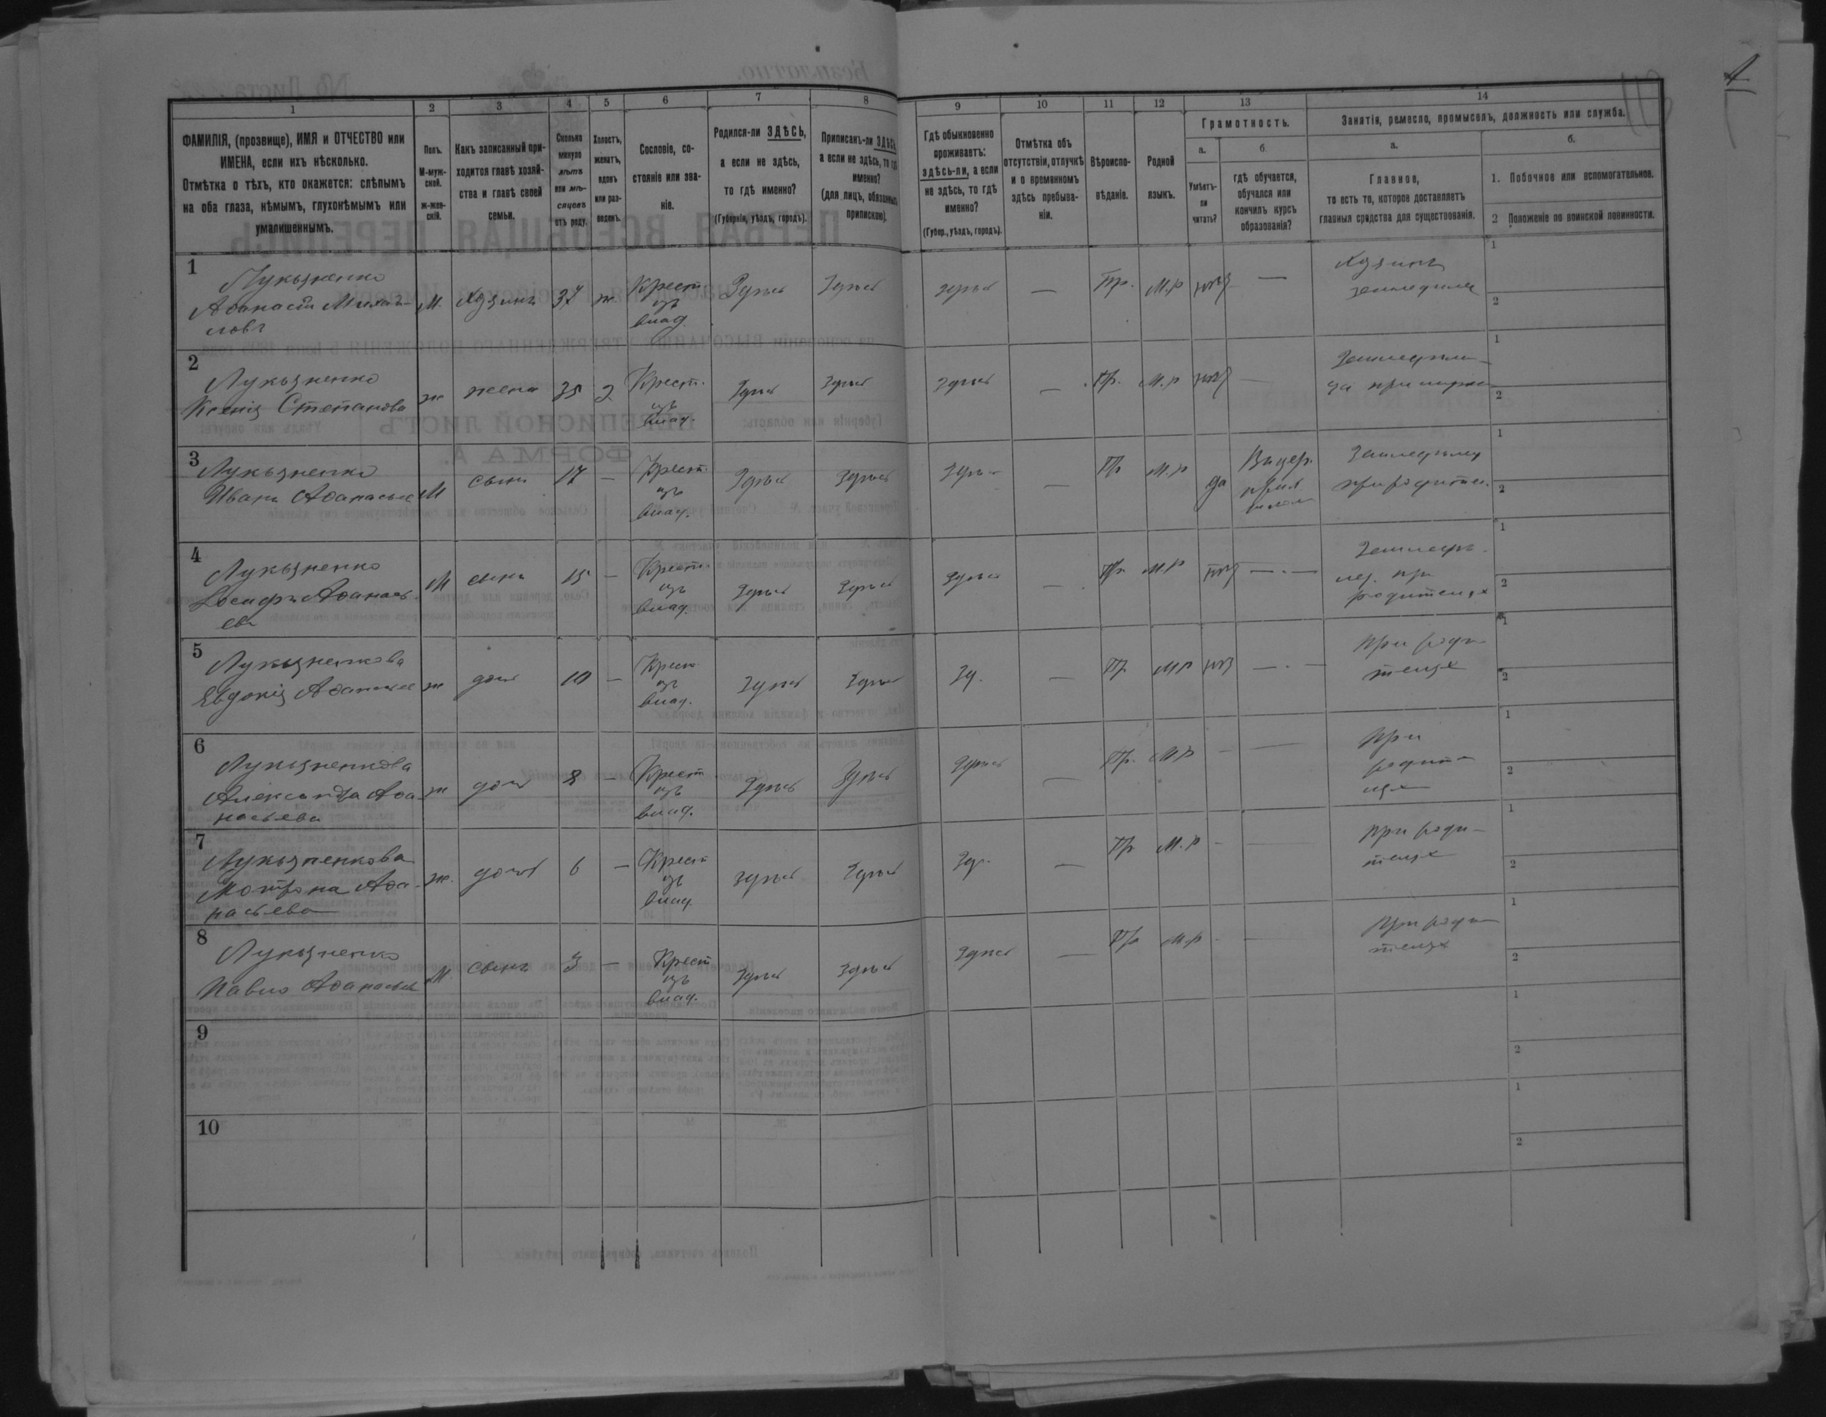 1 2 3 4 5 6 7 8 9 10 11 12 13 14
ФАМИЛІЯ, (прозвище), ИМЯ и ОТЧЕСТВО или
ИМЕНА, если ихъ нѣсколько.
Отмѣтка о тѣхъ, кто окажется: слѣпымъ
на оба глаза, нѣмымъ, глухонѣмымъ или
умалишеннымъ.
Полъ.
М-муж-
ской.
ж-жен-
скій.
Какъ записанный при-
ходится главѣ хозяй-
ства и главѣ своей
семьи.
Сколько
минуло
лѣтъ
или мѣ-
сяцевъ
отъ роду.
Холостъ,
женатъ,
вдовъ
или раз-
веденъ.
Сословіе, со-
стояніе или зва-
ніе.
Родился-ли ЗДѢСЬ,
а если не здѣсь,
то гдѣ именно?
(Губернія, уѣздъ, городъ).
Приписанъ-ли ЗДѢСЬ,
а если не здѣсь, то гдѣ
именно?
(для лицъ, обязанныхъ
припиской).
Гдѣ обыкновенно
проживаетъ:
ЗДѢСЬ-ли, а если
не здѣсь, то гдѣ
именно?
(Губер., уѣздъ, городъ).
Отмѣтка объ
отсутствіи, отлучкѣ
и о временномъ
здѣсь пребыва-
ніи.
Вѣроиспо-
вѣданіе.
Родной
языкъ.
Грамотность.
а.
Умѣетъ-
ли
читать?
б.
гдѣ обучается,
обучался или
кончилъ курсъ
образованія?
Занятія, ремесло, промыселъ, должность или служба.
а.
Главное,
то есть то, которое доставляетъ
главныя средства для существованія.
б.
1. Побочное или вспомогательное.
2 Положеніе по воинской повинности.
1
Лукьяненко
Аѳанасій Михай-
ловъ
М. Хозяинъ 37 ж. Крест.
изъ
влад.
Здѣсь Здѣсь здѣсь — Пр. М.р нѣт —
Хозяинъ
земледѣлец
1
2
2
Лукьяненко
Ксенія Степанова
ж жена 35 з. Крест.
изъ
влад.
Здѣсь Здѣсь Здѣсь — Пр. М.р нѣт —
1
2
3
Лукьяненко
Иванъ Аѳанасьев
М сынъ 17 — Крест.
изъ
влад.
Здѣсь Здѣсь Здѣсь — Пр М.р да
Земледѣлец
при родител.
1
2
4
Лукьяненко
Іосифъ Аѳанась
евъ
М сынъ 15 — Крест.
изъ
влад.
Здѣсь Здѣсь Здѣсь — Пр. М.р нѣт —
Земледѣ-
лец. при
родителях
1
2
5
Лукьяненкова
Евдокія Аѳанасьев
ж дочь 10 — Крест
изъ
влад.
Здѣсь Здѣсь Зд. — Пр. М.р нѣт —
При роди-
телях
1
2
6
Лукьяненкова
Александра Аѳа-
насьева
ж дочь 8 — Крест
изъ
влад.
Здѣсь Здѣсь Здѣсь — Пр. М.р — —
При
родите-
лях
1
2
7
Лукьяненкова
Мотрона Аѳа-
насьева
ж. дочь 6 — Крест
изъ
влад.
здѣсь Здѣсь Зд. — Пр М.р - —
При роди-
телях
1
2
8
Лукьяненко
Павло Аѳанасьев
М. сынъ 3 — Крест
изъ
влад.
Здѣсь Здѣсь Здѣсь — Пр М.р - —
При роди-
телях
1
2
9
1
2
10
1
2